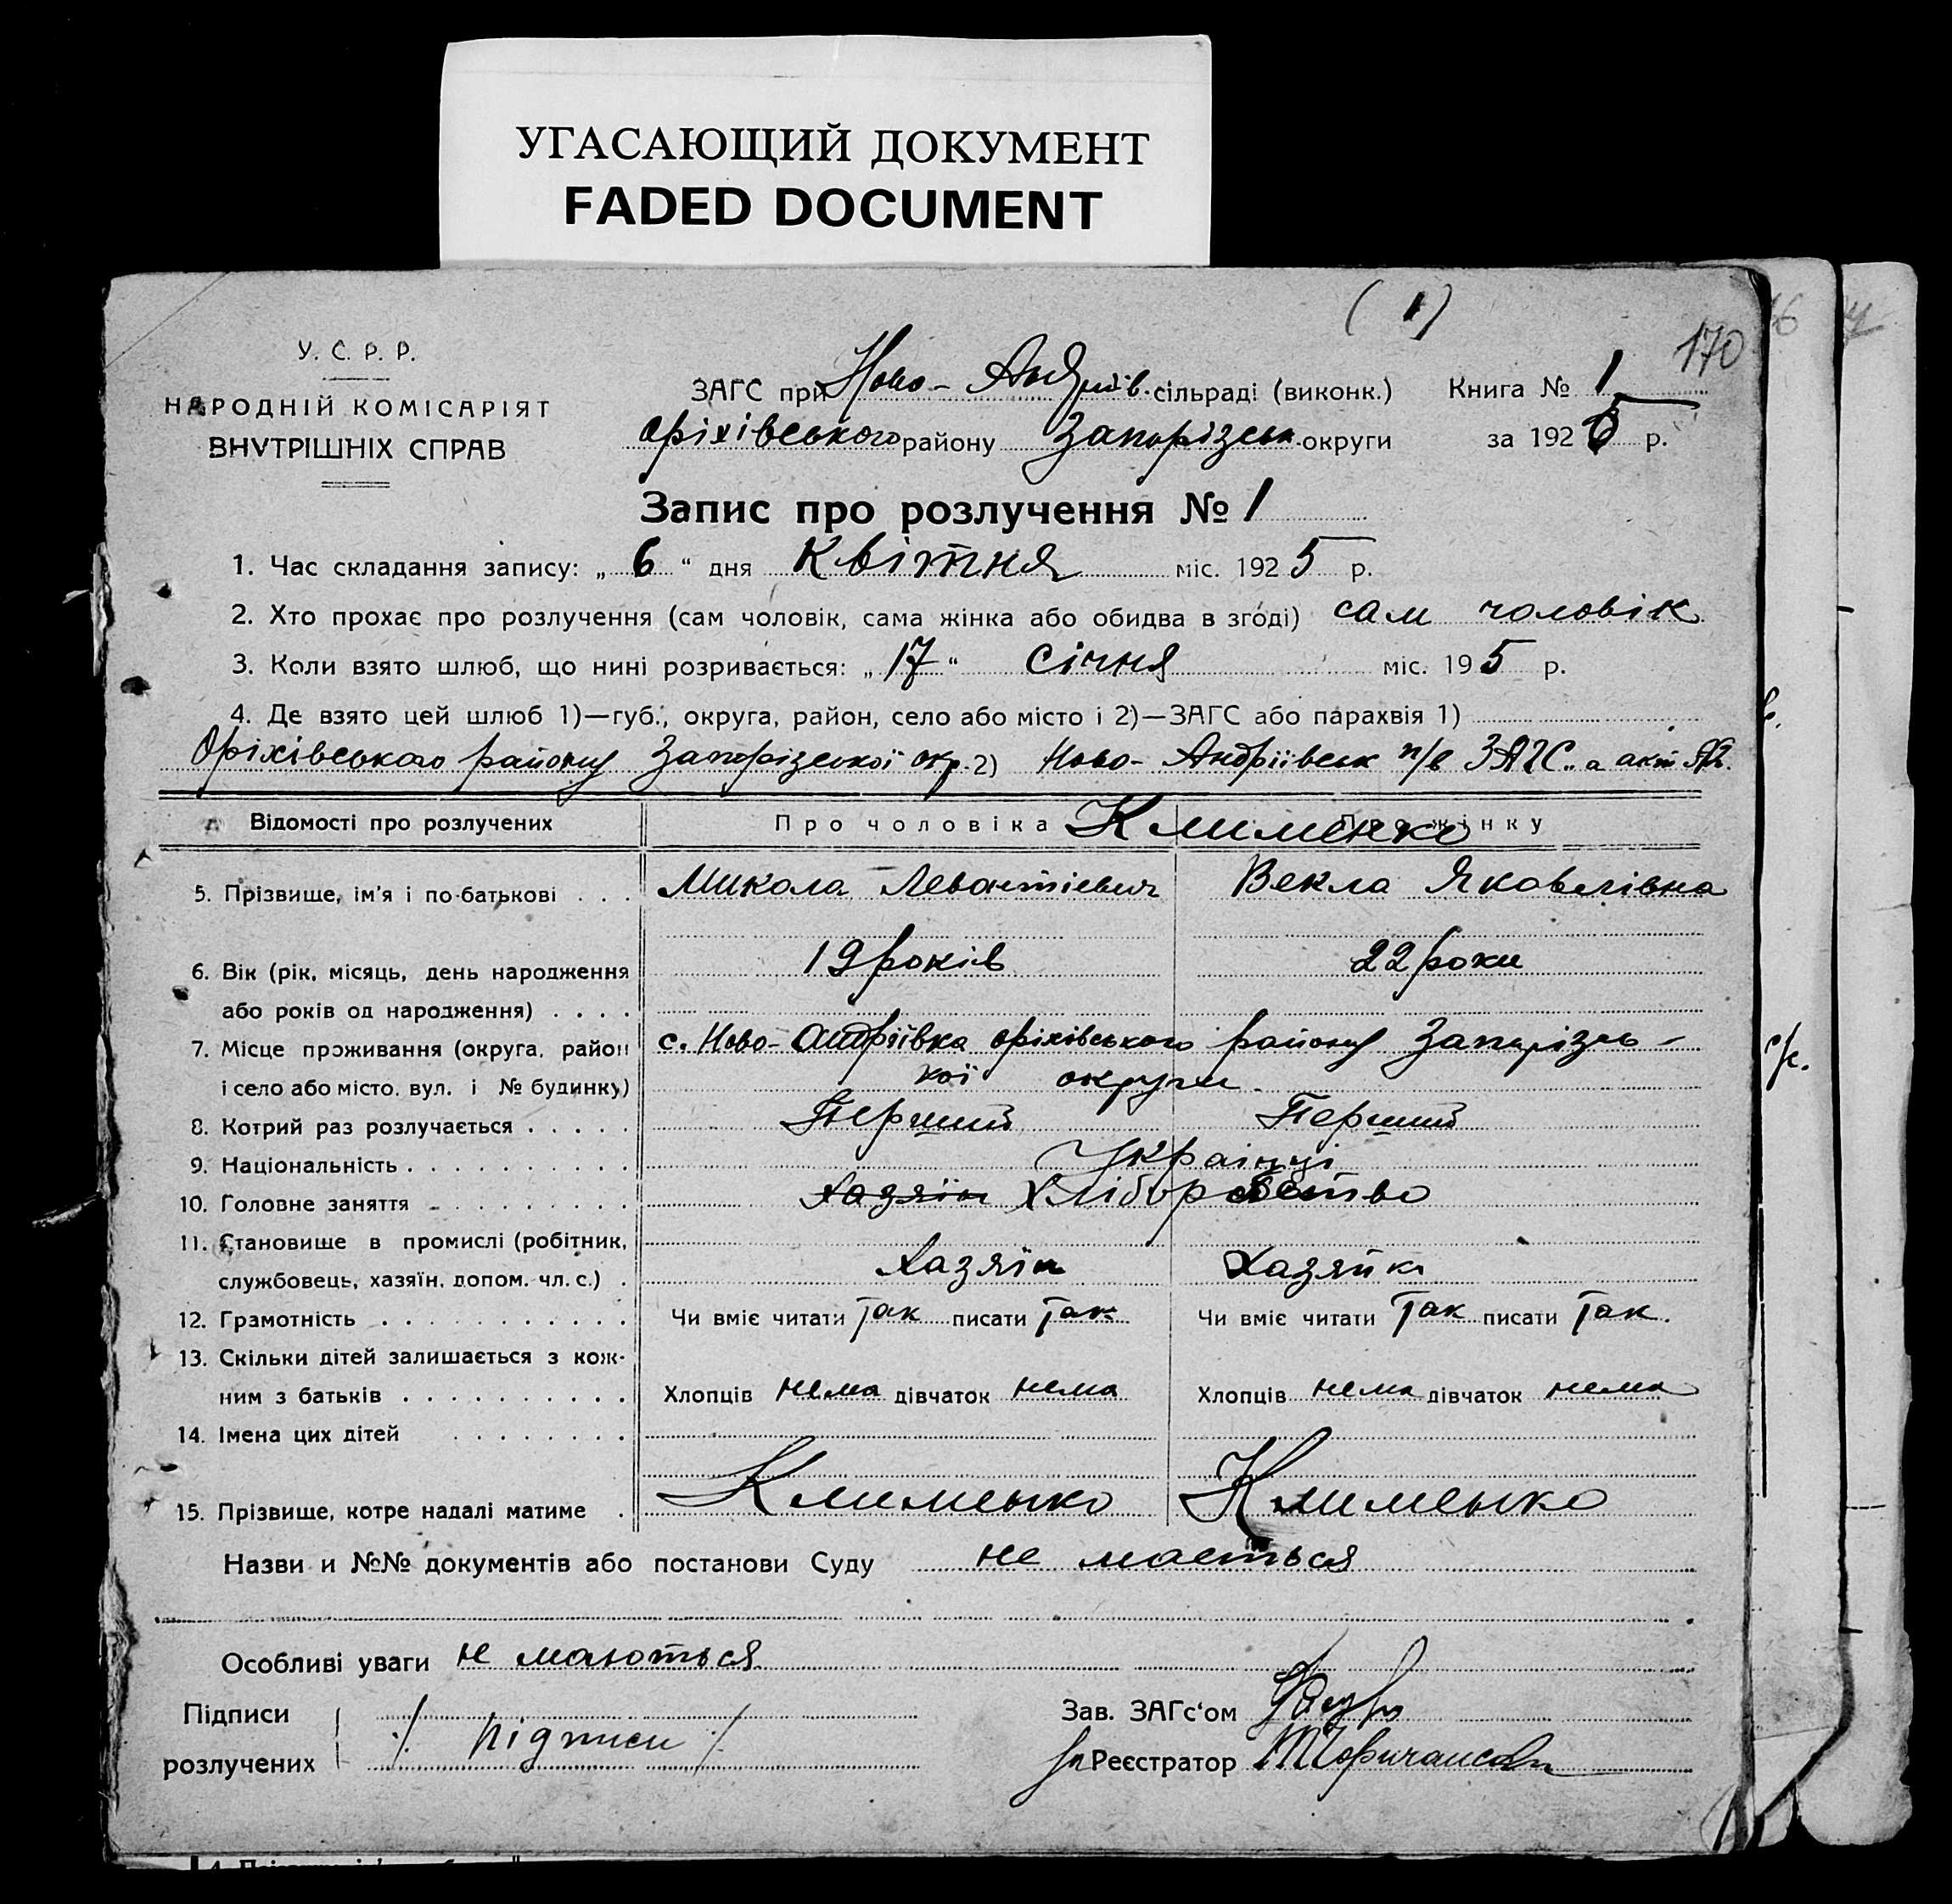 УГАСАЮЩИЙ ДОКУМЕНТ
FADED DOCUMENT
(1)
170
У. С. Р. Р.
НАРОДНІЙ КОМІСАРІЯТ
ВНУТРІШНІХ СПРАВ
ЗАГС при Ново-Андріїв. сільраді (виконк.) Книга № 1
Оріхівського району Запорізськ. округи за 1925 р.
Запис про розлучення № 1
1. Час складання запису: „6" дня Квітня міс. 1925 р.
2. Хто прохає про розлучення (сам чоловік, сама жінка або обидва в згоді) сам чоловік
3. Коли взято шлюб, що нині розривається: „17" Січня міс. 195 р.
4. Де взято цей шлюб 1)—губ., округа, район, село або місто і 2)—ЗАГС або парахвія 1)
Оріхівського району Запорізської окр. 2) Ново-Андріївськ п/в ЗАГС. акт
Відомості про розлучених Про чоловіка Про жінку
Клименко
5. Прізвище, ім'я і по-батькові . . . Микола Левонтієвич Векла Яковлівна
6. Вік (рік, місяць, день народження 19 років 22 роки
або років од народження) . . . .
7. Місце проживання (округа, район с. Ново-Андріївка Оріхівського району Запорізсь-
і село або місто, вул. і № будинку) кої округи.
8. Котрий раз розлучається . . . . . Перший Перший
9. Національність . . . . . . . . . . Українці
10. Головне заняття . . . . . . . . . Хазяїн Хліборобство
11. Становище в промислі (робітник,
службовець, хазяїн, допом. чл. с.) . Хазяїн Хазяйка
12. Грамотність . . . . . . . . . . . Чи вміє читати Так писати Так Чи вміє читати Так писати Так.
13. Скільки дітей залишається з кож-
ним з батьків . . . . . . . . . . Хлопців нема дівчаток нема Хлопців нема дівчаток нема
14. Імена цих дітей . . . . . . . .
15. Прізвище, котре надалі матиме . Клименко Клименко
Назви и №№ документів або постанови Суду не мається
Особливі уваги не маються
Підписи Зав. ЗАГс'ом
розлучених ./. підписи ./. Реєстратор